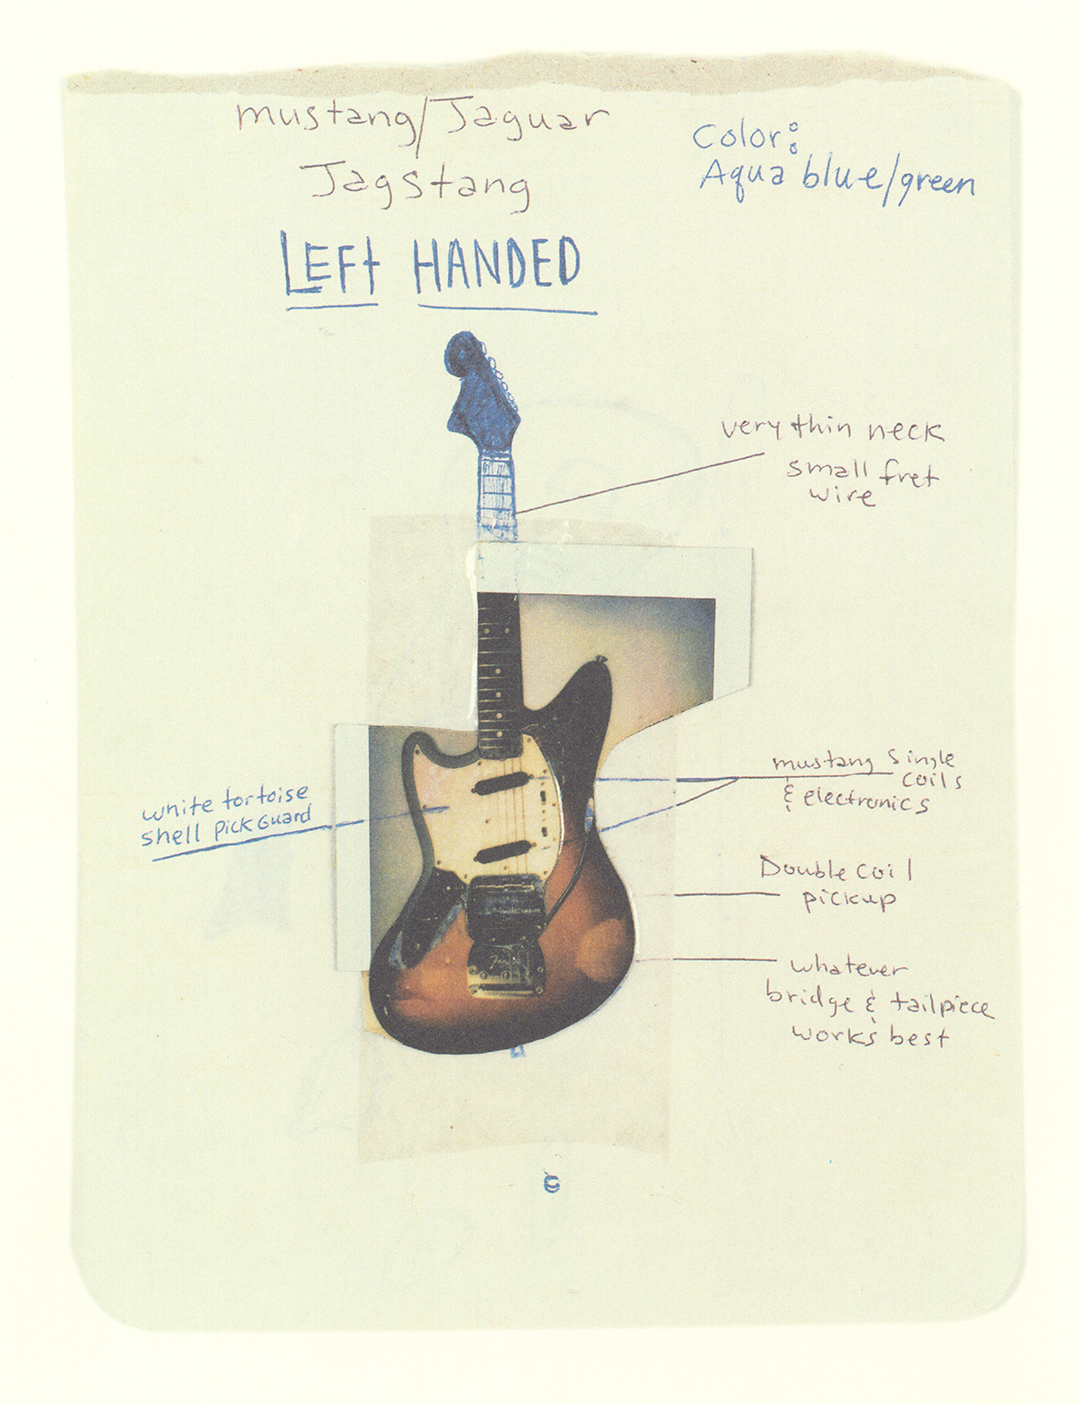 mustang/Jaguar
Jagstang
Color:
Aqua blue/green
LEFt HANDED
very thin neck
small fret
wire
mustang Single
coils
& electronics
white tortoise
shell Pick Guard
Double coil
pickup
whatever
bridge & tailpiece
works best
Fender